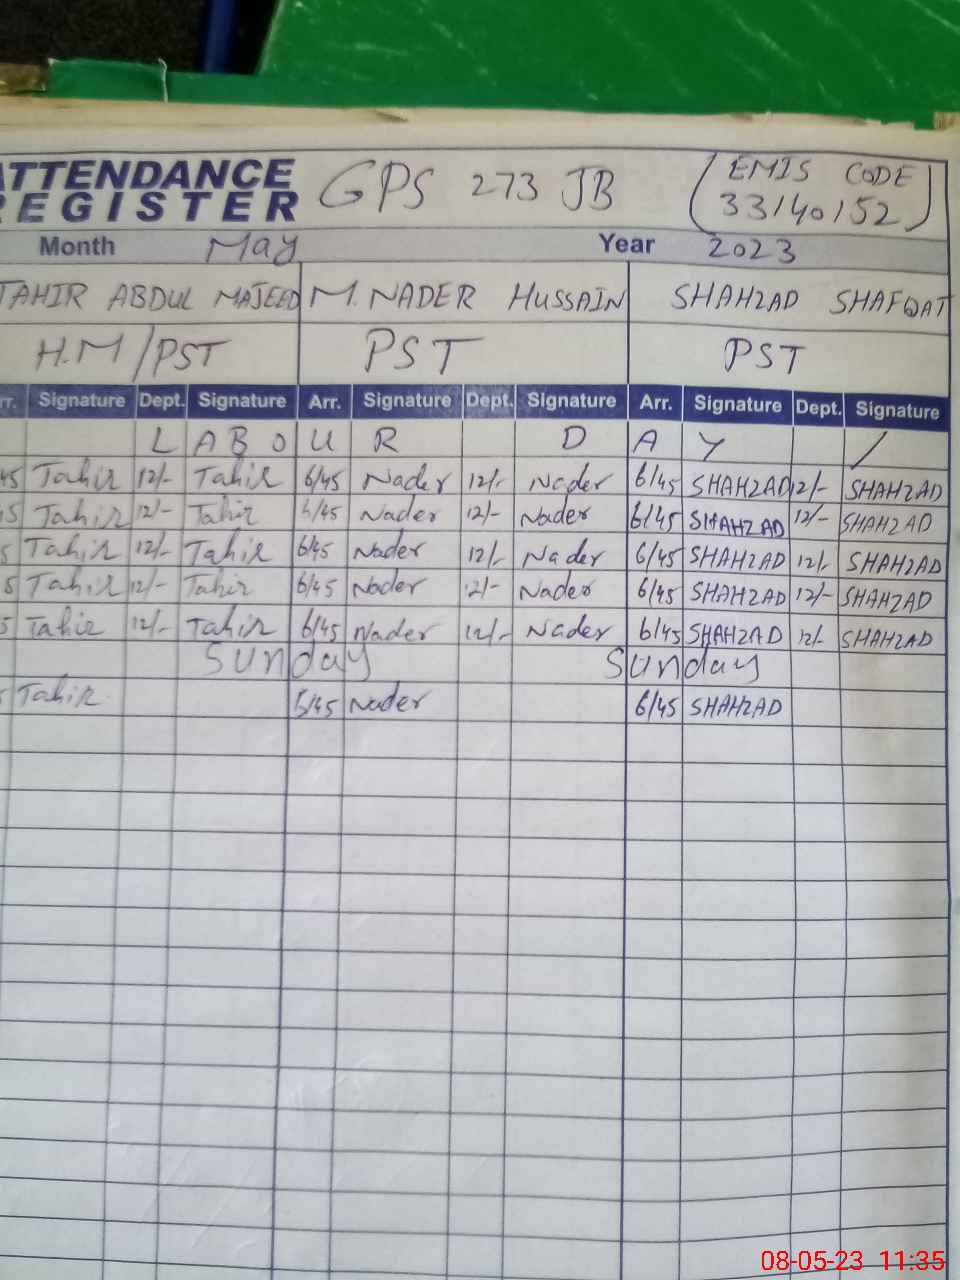 ATTENDANCE
REGISTER GPS 273 JB (EMIS CODE
33140152)
Month May Year 2023
TAHIR ABDUL MAJEED M. NADER HUSSAIN SHAHZAD SHAFQAT
H.M/PST PST PST
Arr. Signature Dept. Signature Arr. Signature Dept. Signature Arr. Signature Dept. Signature
L A B O U R D A Y /
45 Tahir 12/- Tahir 6/45 Nader 12/- Nader 6/45 SHAHZAD 12/- SHAHZAD
45 Tahir 12/- Tahir 6/45 Nader 12/- Nader 6/45 SHAHZAD 12/- SHAHZAD
5 Tahir 12/- Tahir 6/45 Nader 12/- Nader 6/45 SHAHZAD 12/- SHAHZAD
5 Tahir 12/- Tahir 6/45 Nader 12/- Nader 6/45 SHAHZAD 12/- SHAHZAD
5 Tahir 12/- Tahir 6/45 Nader 12/- Nader 6/45 SHAHZAD 12/- SHAHZAD
Sunday Sunday
5 Tahir 6/45 Nader 6/45 SHAHZAD
08-05-23 11:35